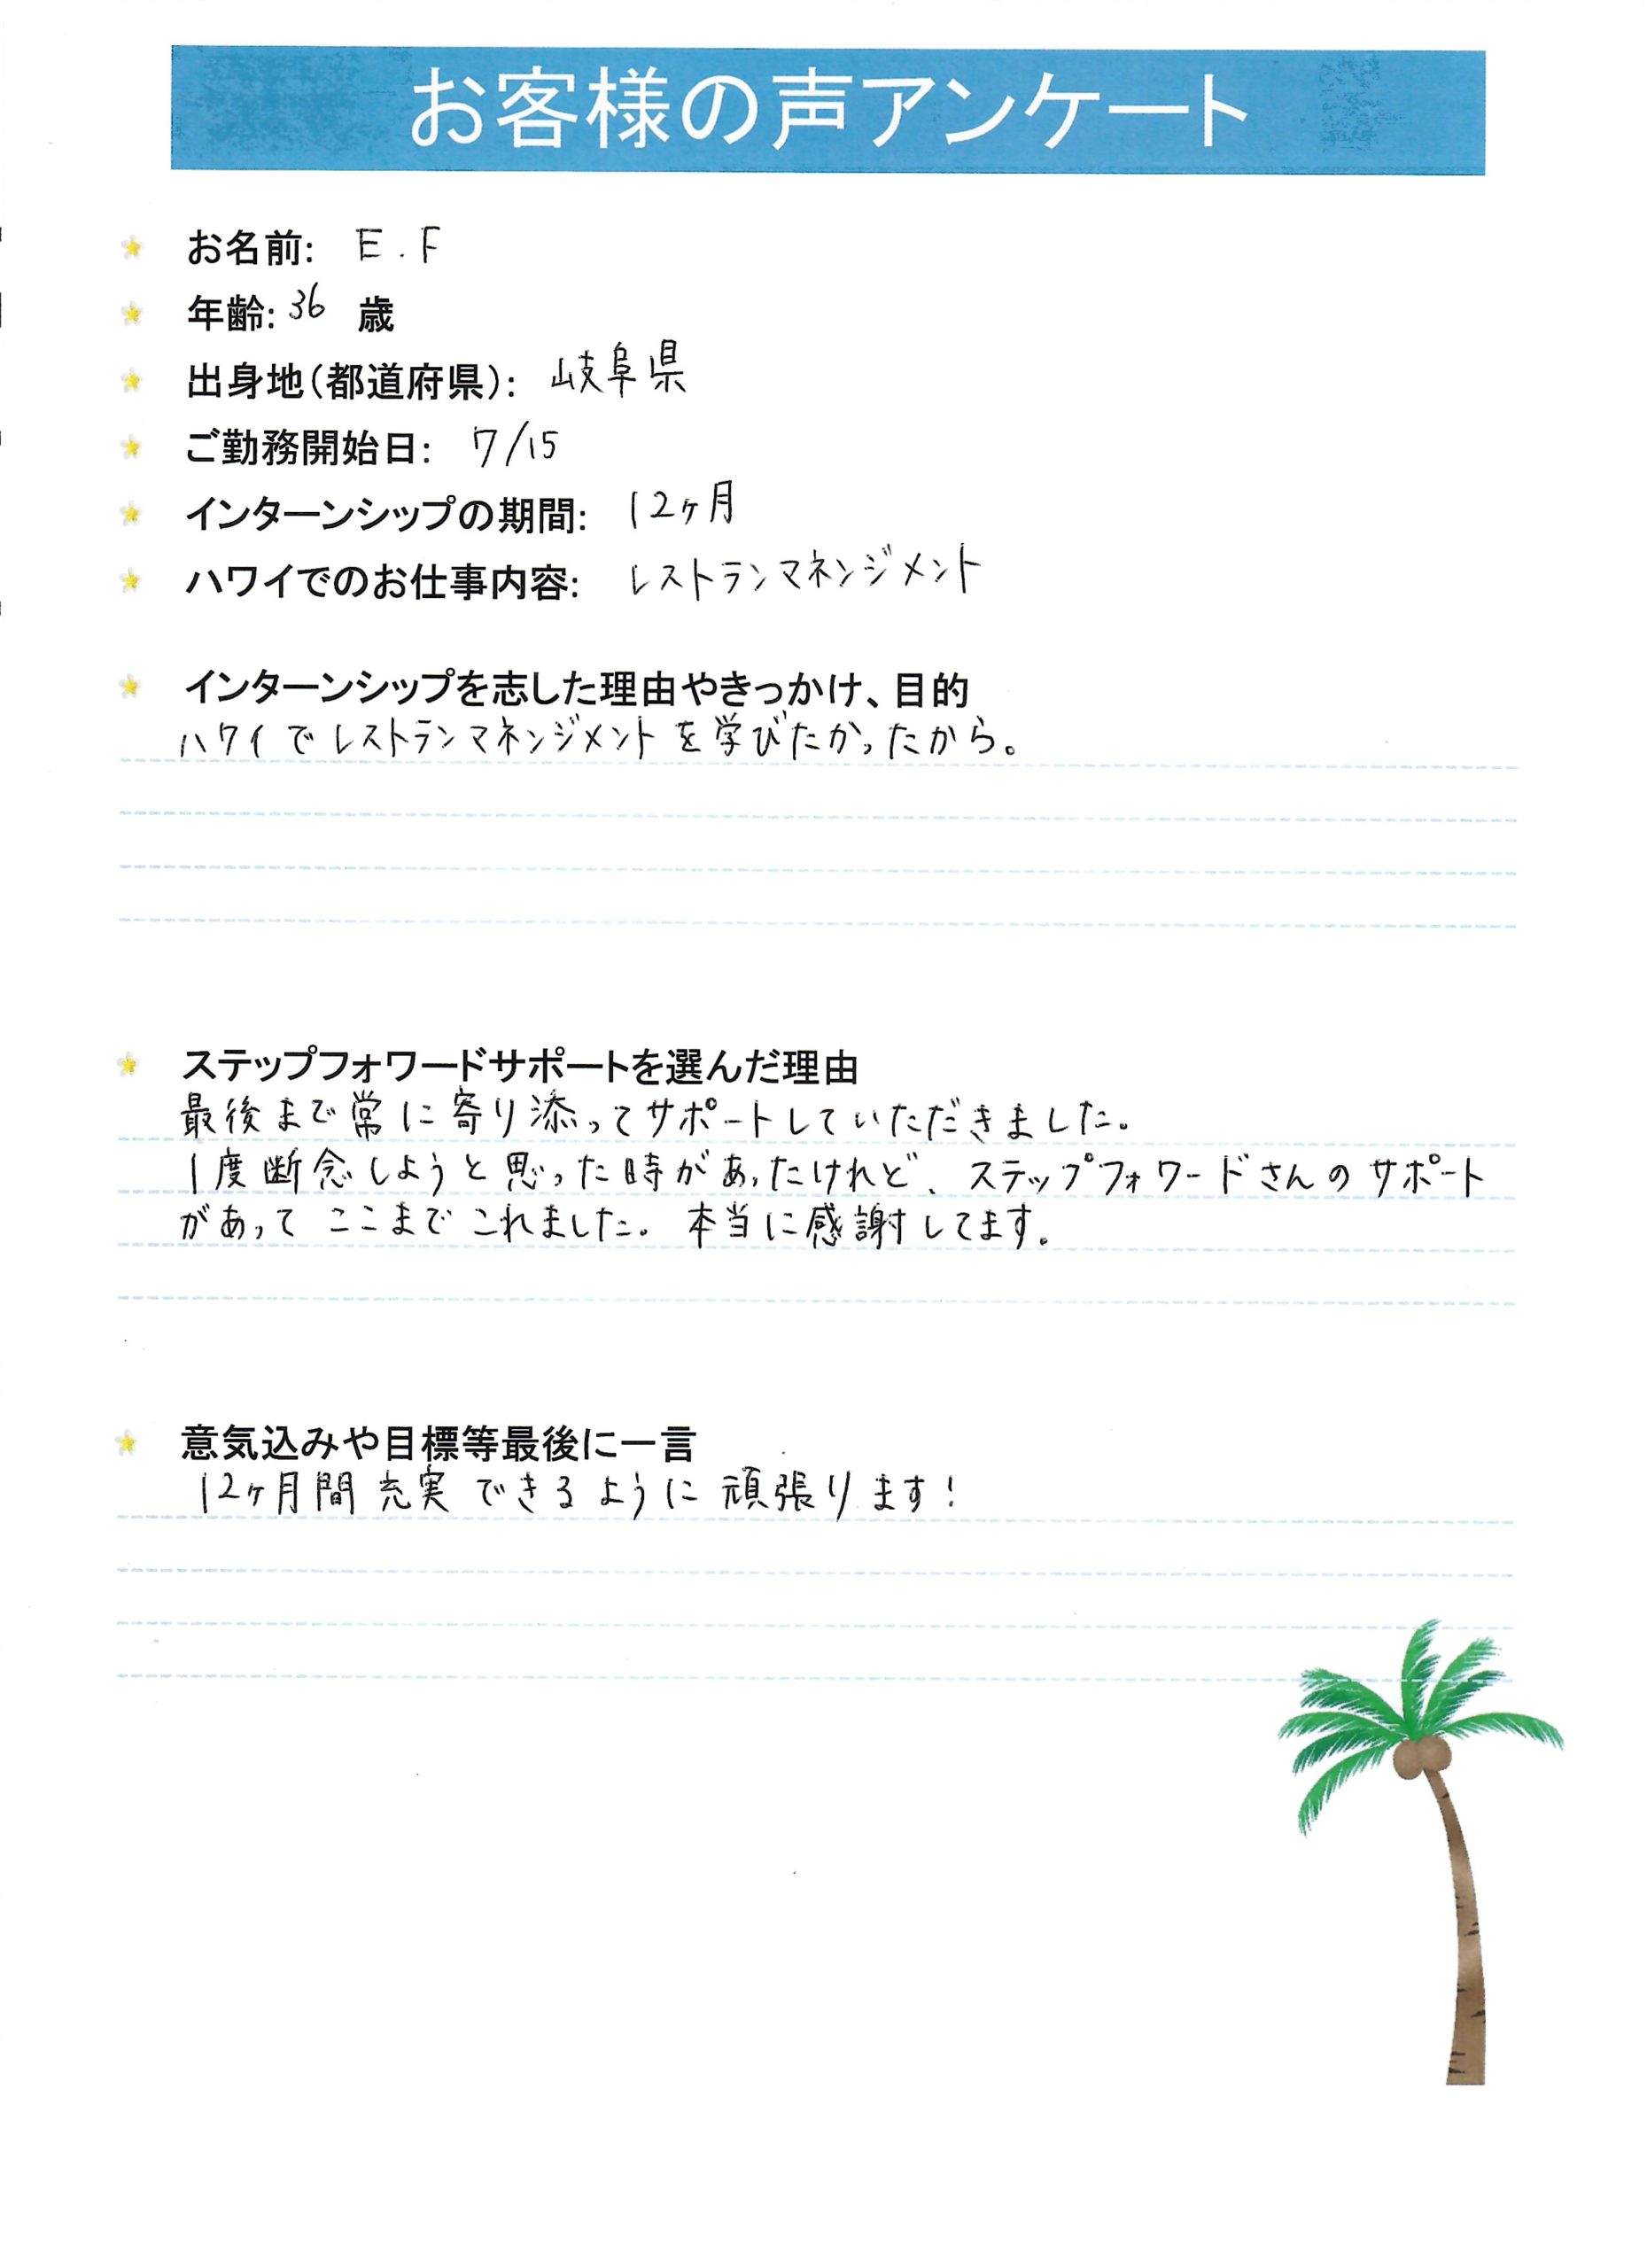 お客様の声アンケート
お名前: E.F
年齢: 36 歳
出身地(都道府県): 岐阜県
ご勤務開始日: 7/15
インターンシップの期間: 12ヶ月
ハワイでのお仕事内容: レストランマネンジメント
インターンシップを志した理由やきっかけ、目的
ハワイでレストランマネンジメントを学びたかったから。
ステップフォワードサポートを選んだ理由
最後まで常に寄り添ってサポートしていただきました。
1度断念しようと思った時があったけれど、ステップフォワードさんのサポート
があって ここまで これました。本当に感謝してます。
意気込みや目標等最後に一言
12ヶ月間充実できるように頑張ります!